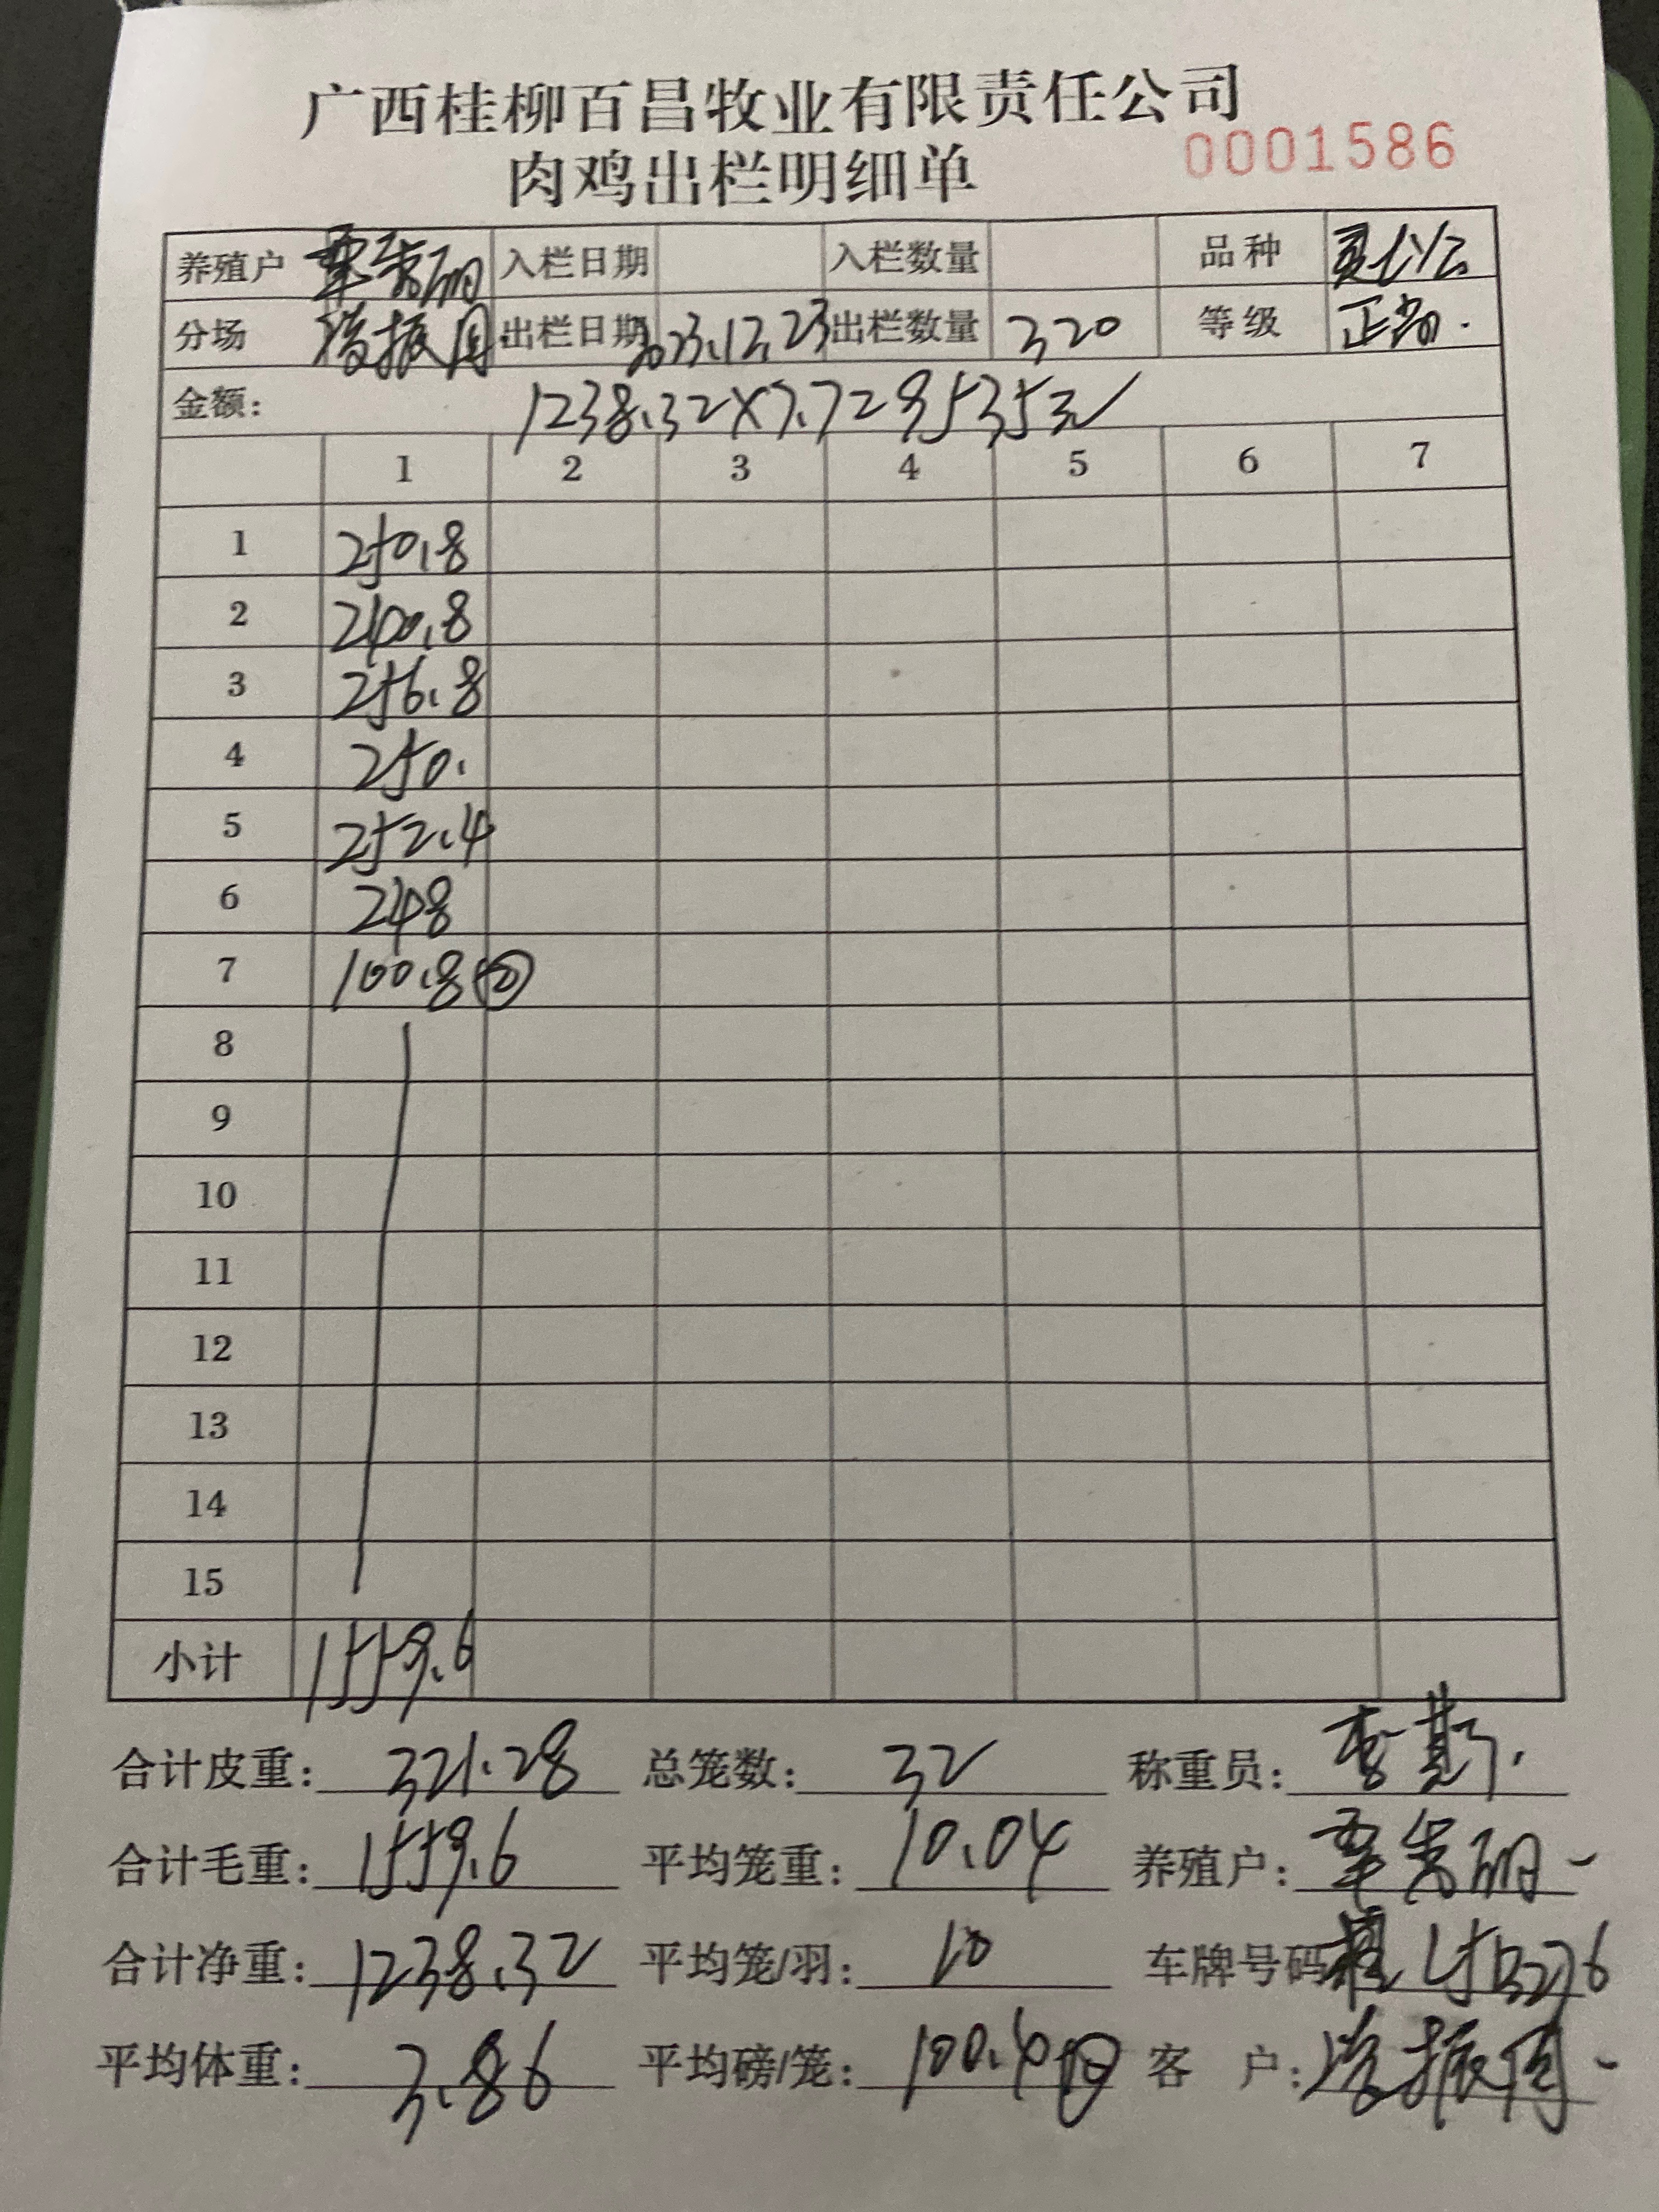 广西桂柳百昌牧业有限责任公司
0001586
肉鸡出栏明细单
养殖户 入栏日期 入栏数量 品种
分场 出栏日期 2023.12.23 出栏数量 320 等级 正常.
金额: 1238.32×7.72
1 2 3 4 5 6 7
1 250.8
2 240.8
3 256.8
4 250.
5 252.4
6 248
7 100.8
8
9
10
11
12
13
14
15
小计 1559.6
合计皮重: 321.28 总笼数: 32 称重员:
合计毛重: 1559.6 平均笼重: 10.04 养殖户:
合计净重: 1238.32 平均笼/羽: 10 车牌号码
平均体重: 3.86 平均磅/笼: 100.4 客户: